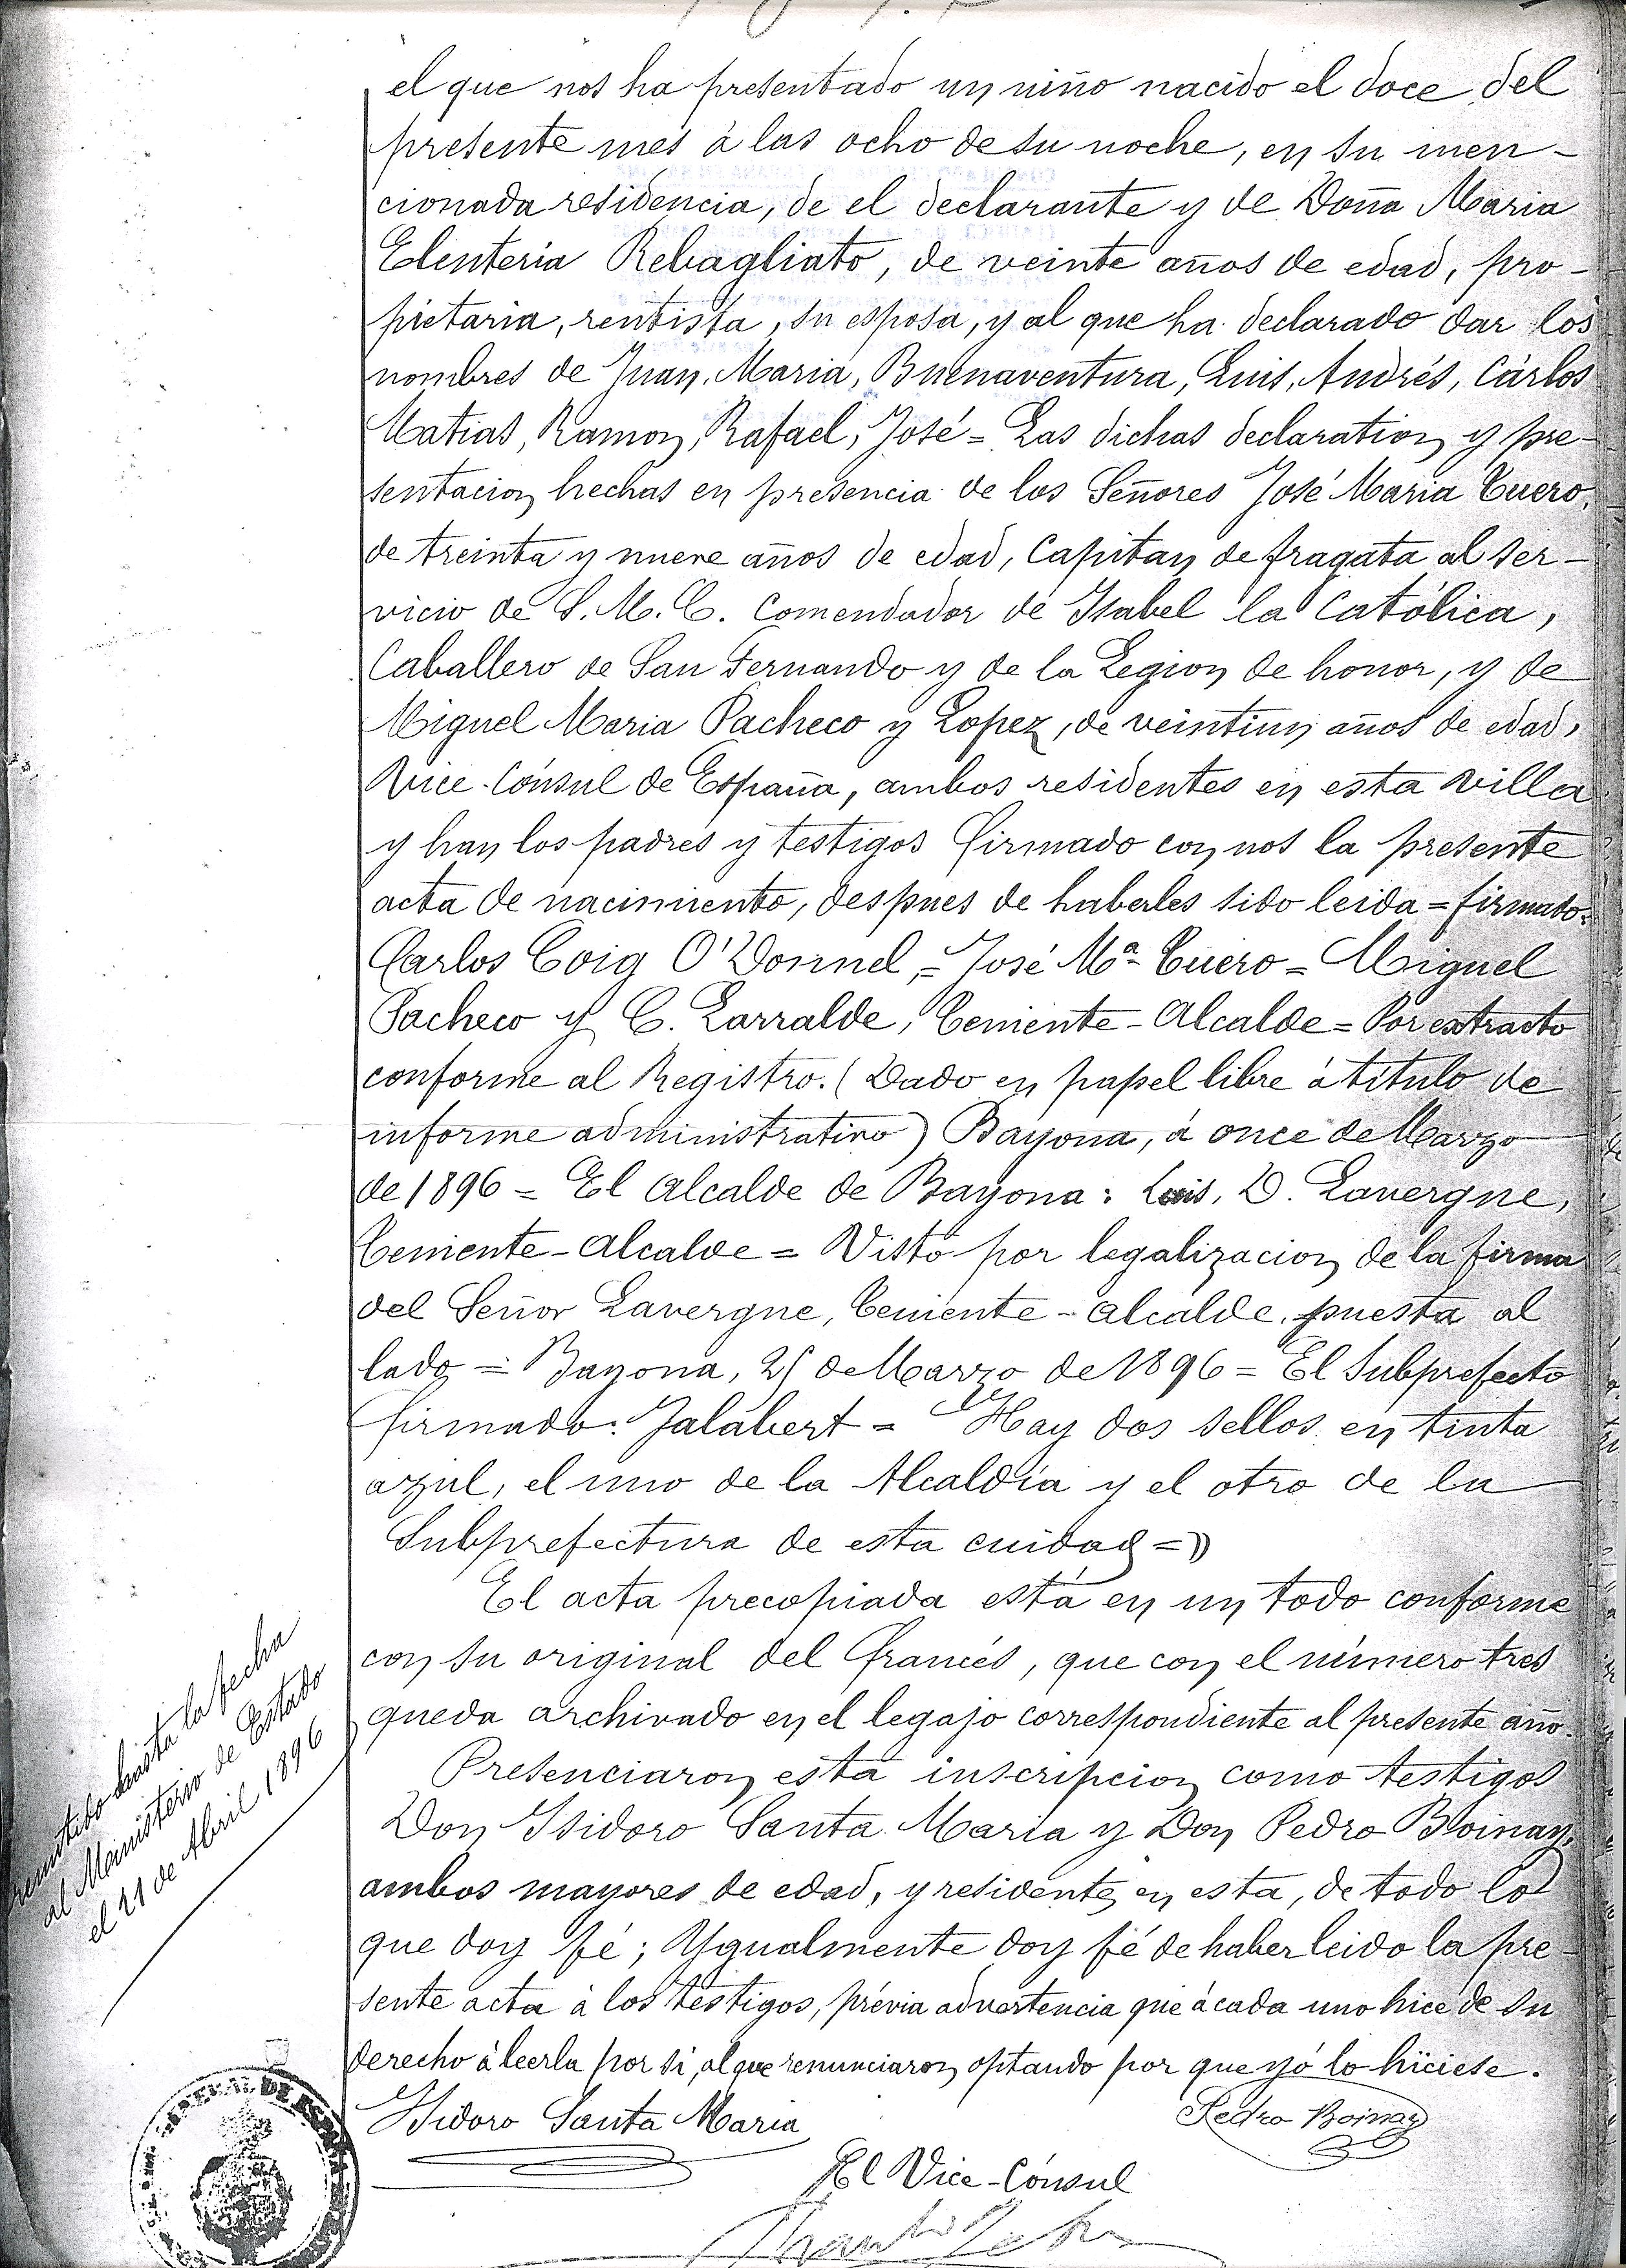 el que nos ha presentado un niño nacido el doce del
presente mes à las ocho de su noche, en su men-
cionada residencia, de el declarante y de Doña Maria
Elenteria Rebagliato, de veinte años de edad, pro-
pietaria, rentista, su esposa, y al que ha declarado dar los
nombres de Juan, Maria, Buenaventura, Luis, Andrés, Cárlos
Matias, Ramon, Rafael, José = Las dichas declaration y pre-
sentacion hechas en presencia de los Señores José Maria Tuero,
de treinta y nueve años de edad, Capitan de fragata al ser-
vicio de S. M. C. Comendador de Isabel la Católica,
Caballero de San Fernando y de la Legion de honor, y de
Miguel Maria Pacheco y Lopez, de veintiun años de edad,
Vice-Cónsul de España, ambos residentes en esta villa
y han los padres y testigos firmado con nos la presente
acta de nacimiento, despues de haberles sido leida = firmado:
Carlos Coig O'Donnel, = José Mª Tuero = Miguel
Pacheco y C. Larralde, Teniente-Alcalde = Por extracto
conforme al Registro. (Dado en papel libre á título de
informe administrativo) Bayona, á once de Marzo
de 1896 = El Alcalde de Bayona: Luis, D. Lavergne,
Teniente-Alcalde = Visto por legalizacion de la firma
del Señor Lavergne, Teniente-alcalde, puesta al
lado = Bayona, 21 de Marzo de 1896 = El Subprefecto
firmado: Jalabert = Hay dos sellos en tinta
azul, el uno de la Alcaldía y el otro de la
Subprefectura de esta cuidad =))
El acta precopiada está en un todo conforme
con su original del francés, que con el número tres
queda archivado en el legajo correspondiente al presente año.
Presenciaron esta inscripcion como testigos
Don Isidoro Santa Maria y Don Pedro Boinay,
ambos mayores de edad, y residentes en esta, de todo lo
que doy fé; Ygualmente doy fé de haber leido la pre-
sente acta à los testigos, prévia advertencia que à cada uno hice de su
derecho à leerla por si, al que renunciaron optando por que yó lo hiciese.
Isidoro Santa Maria
Pedro Boinay
El Vice-Cónsul
remitido hasta la fecha
al Ministerio de Estado
el 21 de Abril 1896
DE ESPAÑA